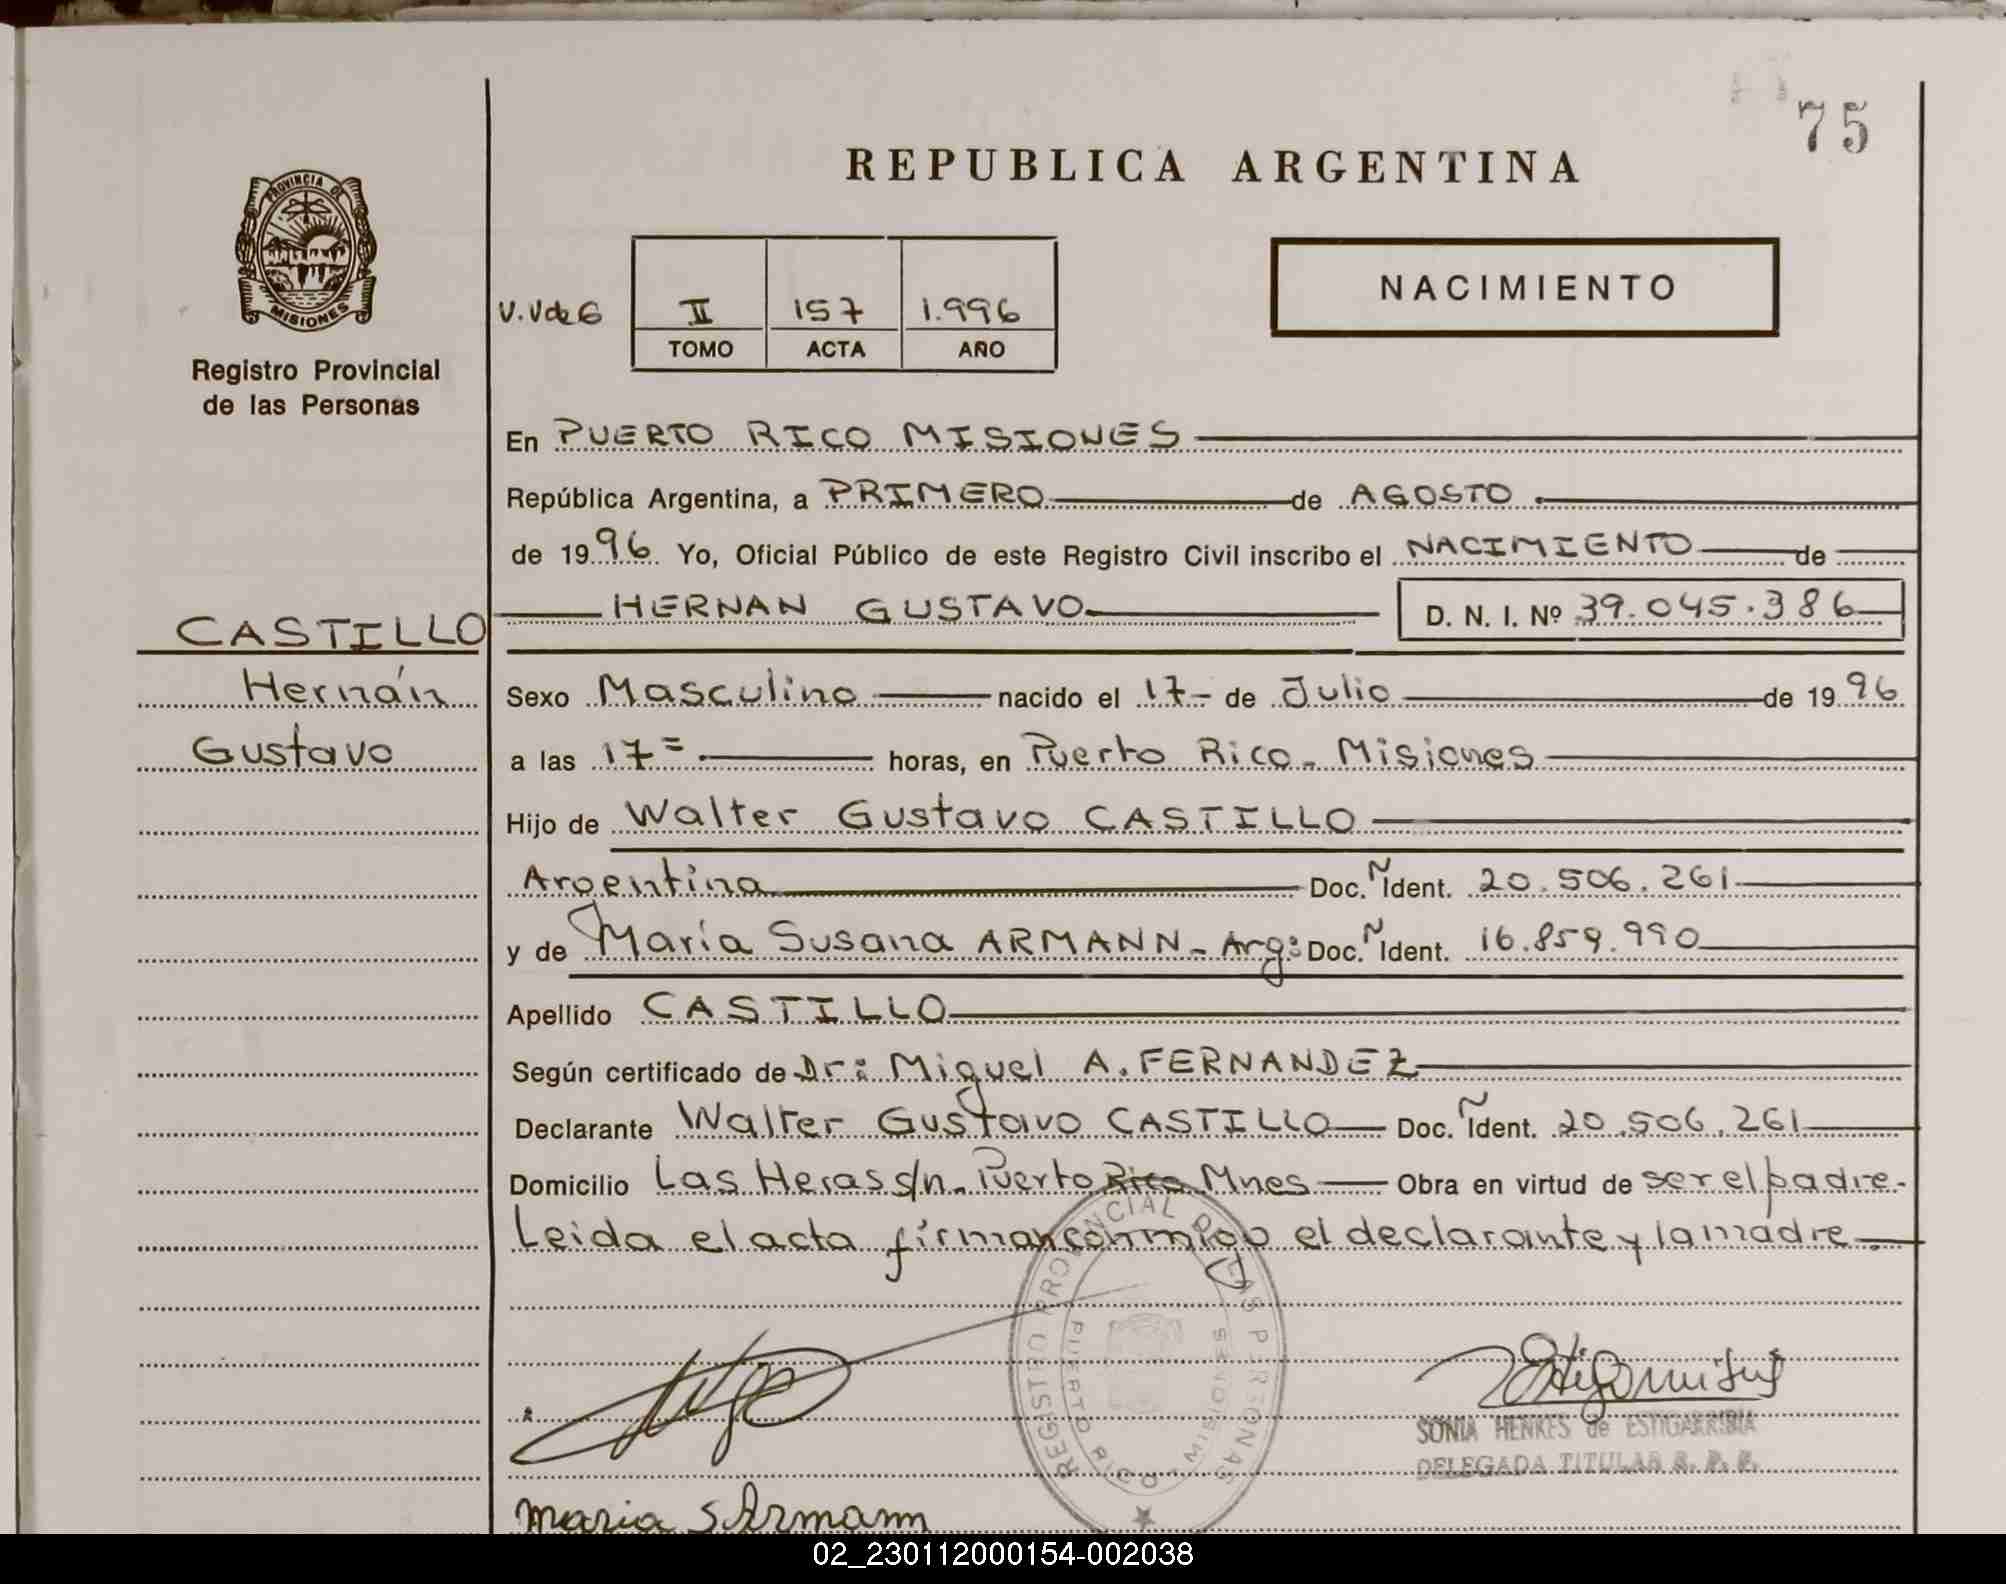 75
REPUBLICA ARGENTINA
PROVINCIA DE
MISIONES
Registro Provincial
de las Personas
V.V de G
II 157 1.996
TOMO ACTA AÑO
NACIMIENTO
En PUERTO RICO MISIONES
República Argentina, a PRIMERO de AGOSTO
de 1996 Yo, Oficial Público de este Registro Civil inscribo el NACIMIENTO de
HERNAN GUSTAVO D. N. I. Nº 39.045.386
CASTILLO
Hernán
Gustavo
Sexo Masculino nacido el 17- de Julio de 1996
a las 17= horas, en Puerto Rico - Misiones
Hijo de Walter Gustavo CASTILLO
Argentina Doc. Ident. 20.506.261
y de María Susana ARMANN - Arg: Doc. Ident. 16.859.990
Apellido CASTILLO
Según certificado de Dr: Miguel A. FERNANDEZ
Declarante Walter Gustavo CASTILLO Doc. Ident. 20.506.261
Domicilio Las Heras s/n - Puerto Rico Mnes Obra en virtud de ser el padre.-
Leida el acta firman conmigo el declarante y la madre.
REGISTRO PROVINCIAL DE LAS PERSONAS
PUERTO RICO - MISIONES
SONIA HENKES de ESTIGARRIBIA
DELEGADA TITULAR R. P. P.
Maria S Armann
02_230112000154-002038